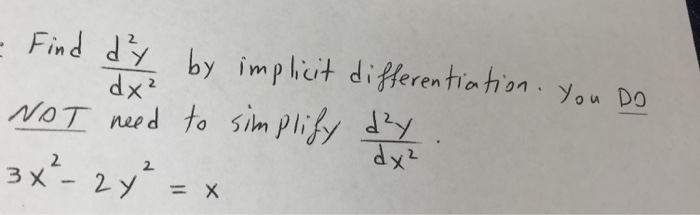 : Find d²y/dx² by implicit differentiation. You DO
NOT need to simplify d²y/dx².
3x² - 2y² = x